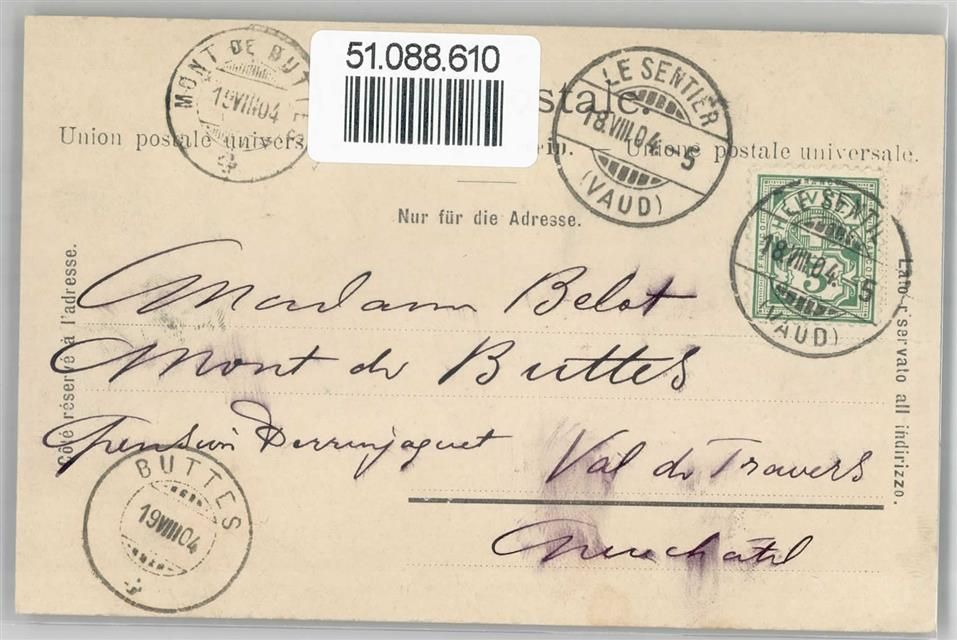 51.088.610
MONT DE BUTTE
19 VIII 04
LE SENTIER
18.VIII.04.-5
(VAUD)
stale.
Union postale univers
— Unione postale universale.
Nur für die Adresse.
HELVETIA
5
LE SENTIE
18.VIII.04.-5
(VAUD)
Côté réservé à l'adresse.
Lato riservato all indirizzo.
Madame Belot
Mont de Buttes
Pension Perrinjaquet Val de Travers
Neuchâtel
BUTTES
19 VIII 04